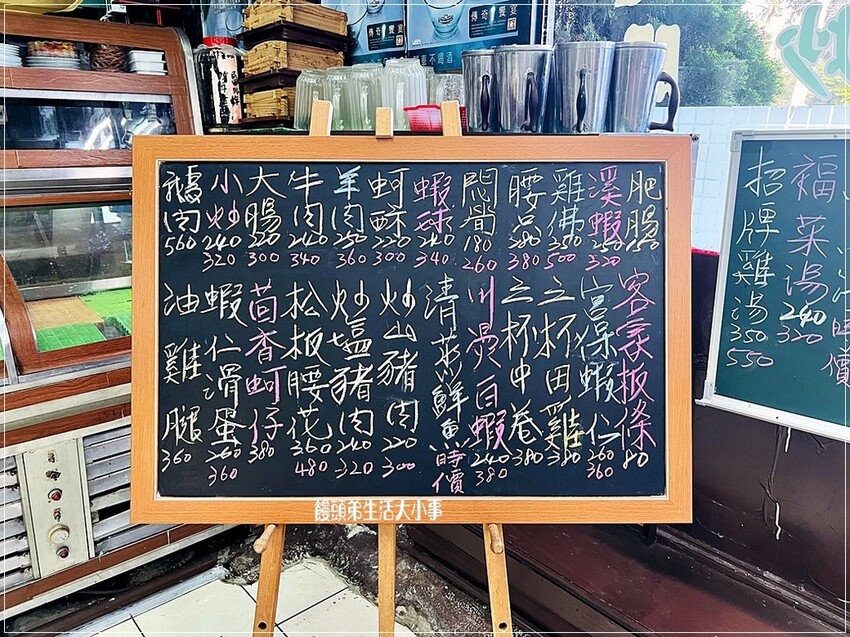 肥腸
溪蝦 250 320
雞佛 350 500
腰只 280 380
悶筍 180 260
蝦球 240 340
蚵酥 220 300
羊肉 250 360
牛肉 240 340
大腸 220 300
小炒 240 320
鵝肉 560
客家板條 80
宮保蝦仁 260 360
三杯田雞 380
三杯中卷 380
川燙白蝦 240 380
清蒸鮮魚 時價
炒山豬肉 220 300
炒塩豬肉 240 320
松板腰花 360 480
茴香蚵仔 380
蝦仁滑蛋 260 360
油雞腿 360
湯 時價
福菜湯 240 320
招牌雞湯 350 550
傳奇饗宴
饅頭弟生活大小事